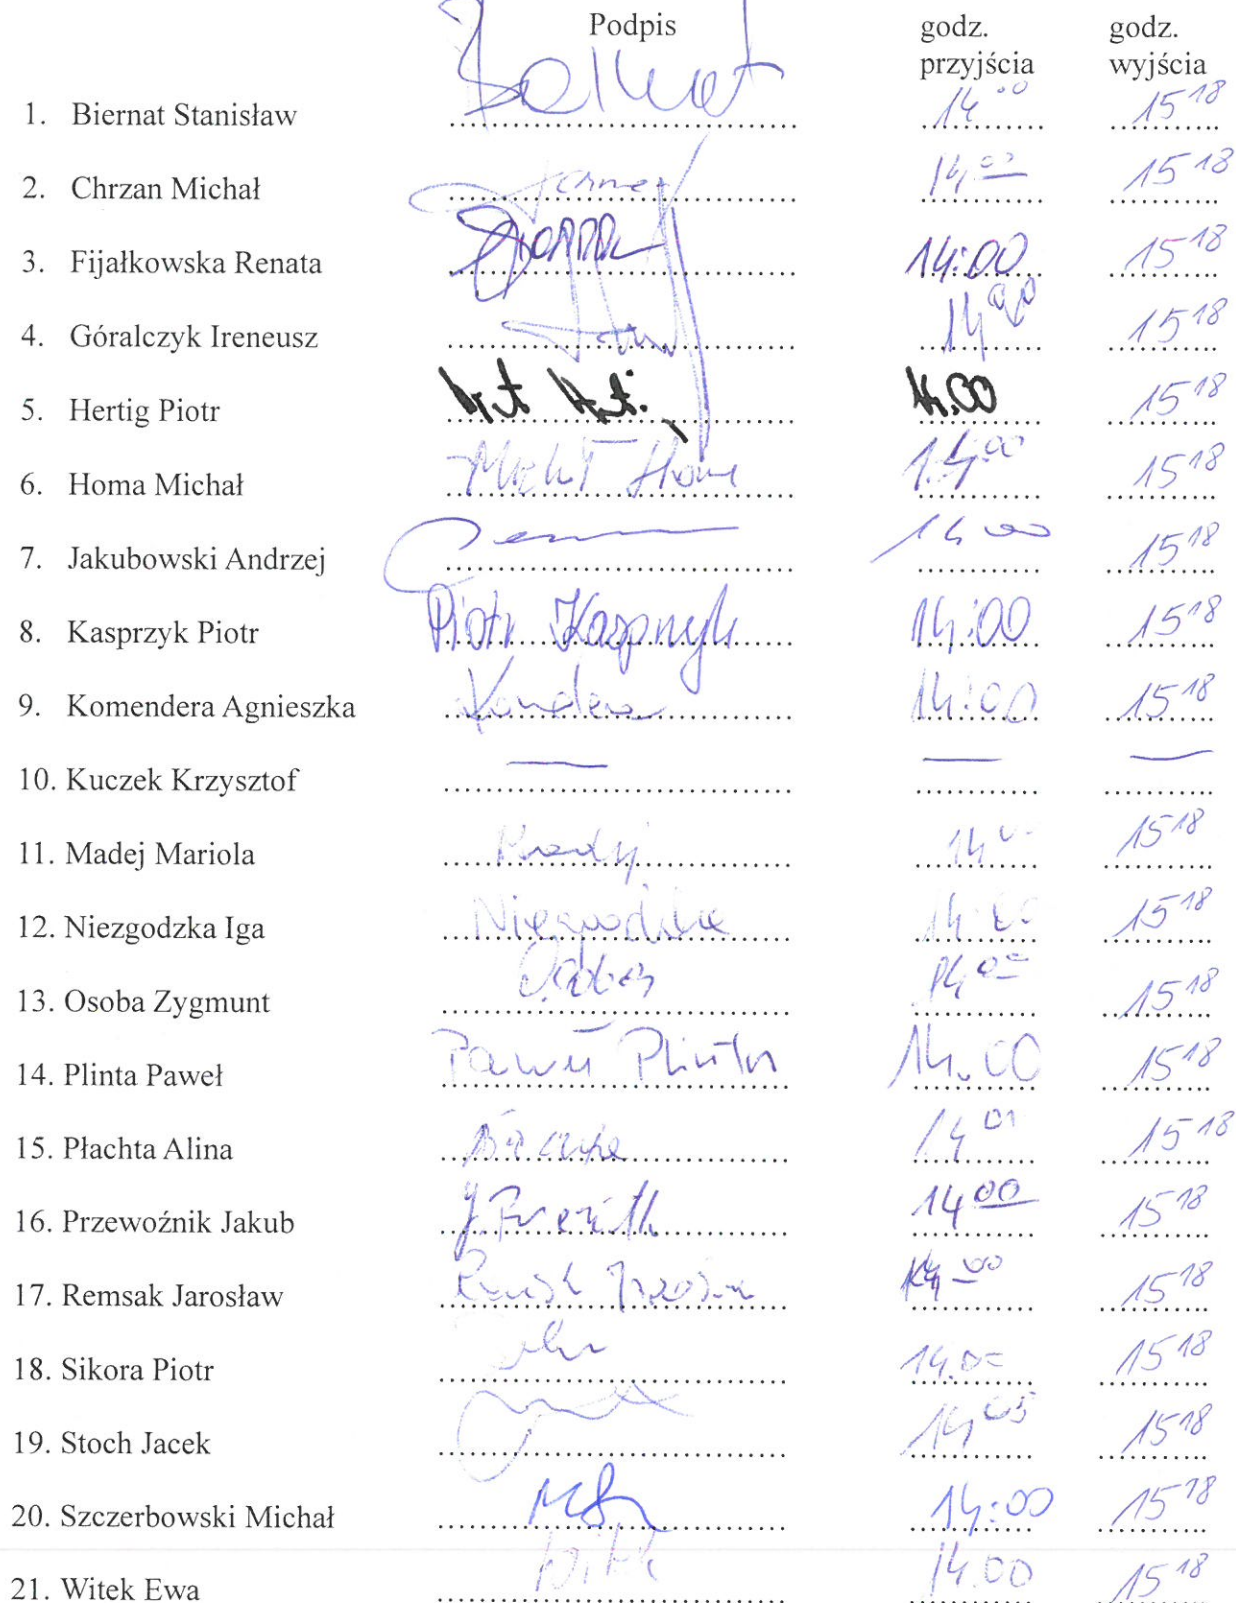 Podpis godz. przyjścia godz. wyjścia
1. Biernat Stanisław 14 00 15 18
2. Chrzan Michał 14 00 15 18
3. Fijałkowska Renata 14:00 15 18
4. Góralczyk Ireneusz 14 00 15 18
5. Hertig Piotr 14.00 15 18
6. Homa Michał Michał Homa 14 00 15 18
7. Jakubowski Andrzej 14 00 15 18
8. Kasprzyk Piotr Piotr Kasprzyk 14:00 15 18
9. Komendera Agnieszka 14:00 15 18
10. Kuczek Krzysztof — — —
11. Madej Mariola Madej 14 15 18
12. Niezgodzka Iga Niezgodzka 14:00 15 18
13. Osoba Zygmunt 14 00 15 18
14. Plinta Paweł Paweł Plinta 14.00 15 18
15. Płachta Alina 14 01 15 18
16. Przewoźnik Jakub 14 00 15 18
17. Remsak Jarosław 14 00 15 18
18. Sikora Piotr 14.00 15 18
19. Stoch Jacek 14 05 15 18
20. Szczerbowski Michał 14:00 15 18
21. Witek Ewa Witek 14.00 15 18